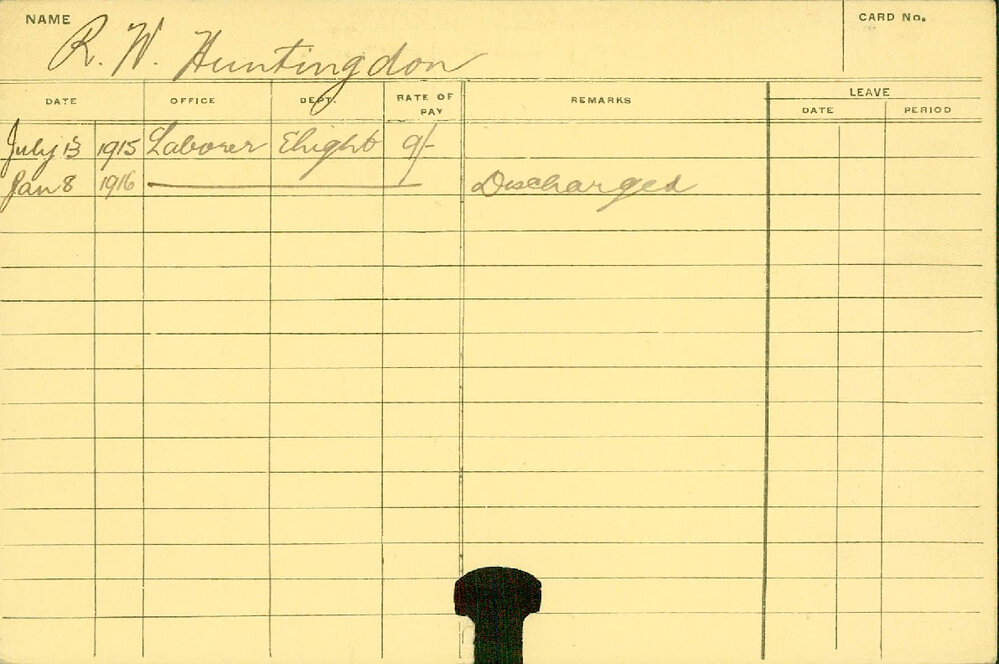 NAME R. W. Huntingdon CARD No.
DATE OFFICE DEPT. RATE OF PAY REMARKS LEAVE
DATE PERIOD
July 13 1915 Laborer Elright 9/-
Jan 8 1916 Discharged